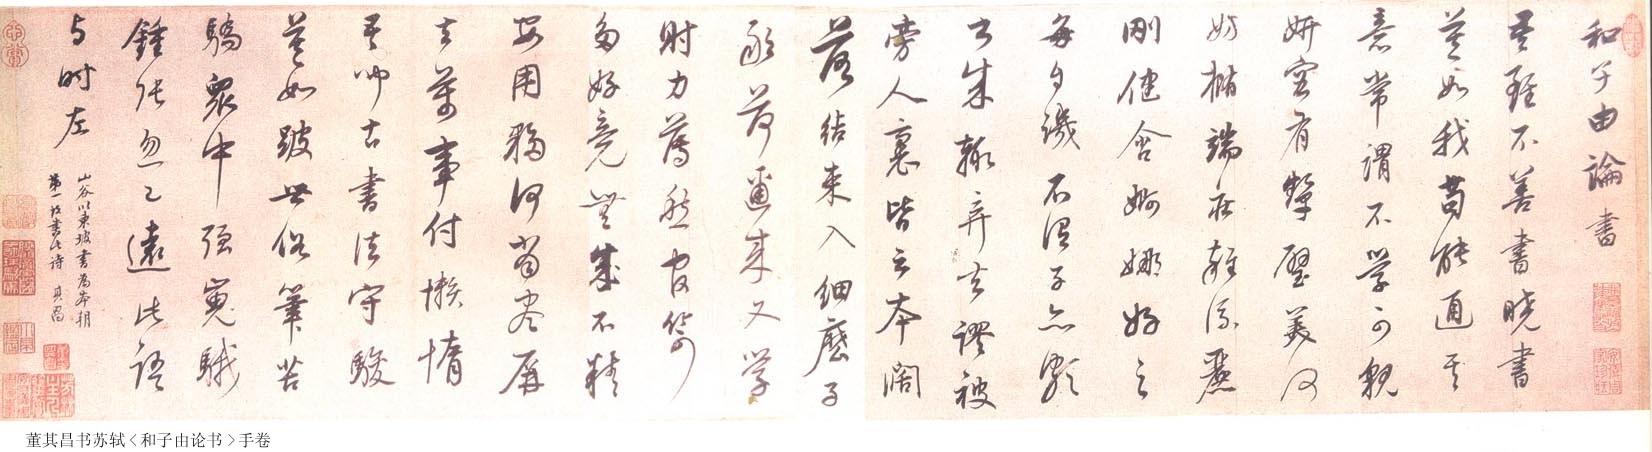 和子由論書
吾雖不善書曉書
莫如我苟能通其
意常謂不學可貌
妍容有顰璧美何
妨橢端莊雜流麗
剛健含婀娜好之
每自譏不謂子亦頗
書成輒棄去謬被
旁人裹皆云本闊
落結束入細麼子
敢荷邇來又學
射力薄愁官笴
多好竟無成不精
安用夥何當盡屏
去萬事付懶惰
吾聞古書法守駿
莫如跛世俗筆苦
驕衆中强嵬騀
鍾張忽已遠此語
與時左
山谷以東坡書為本朝
第一故書此詩 其昌
董其昌书苏轼<和子由论书>手卷